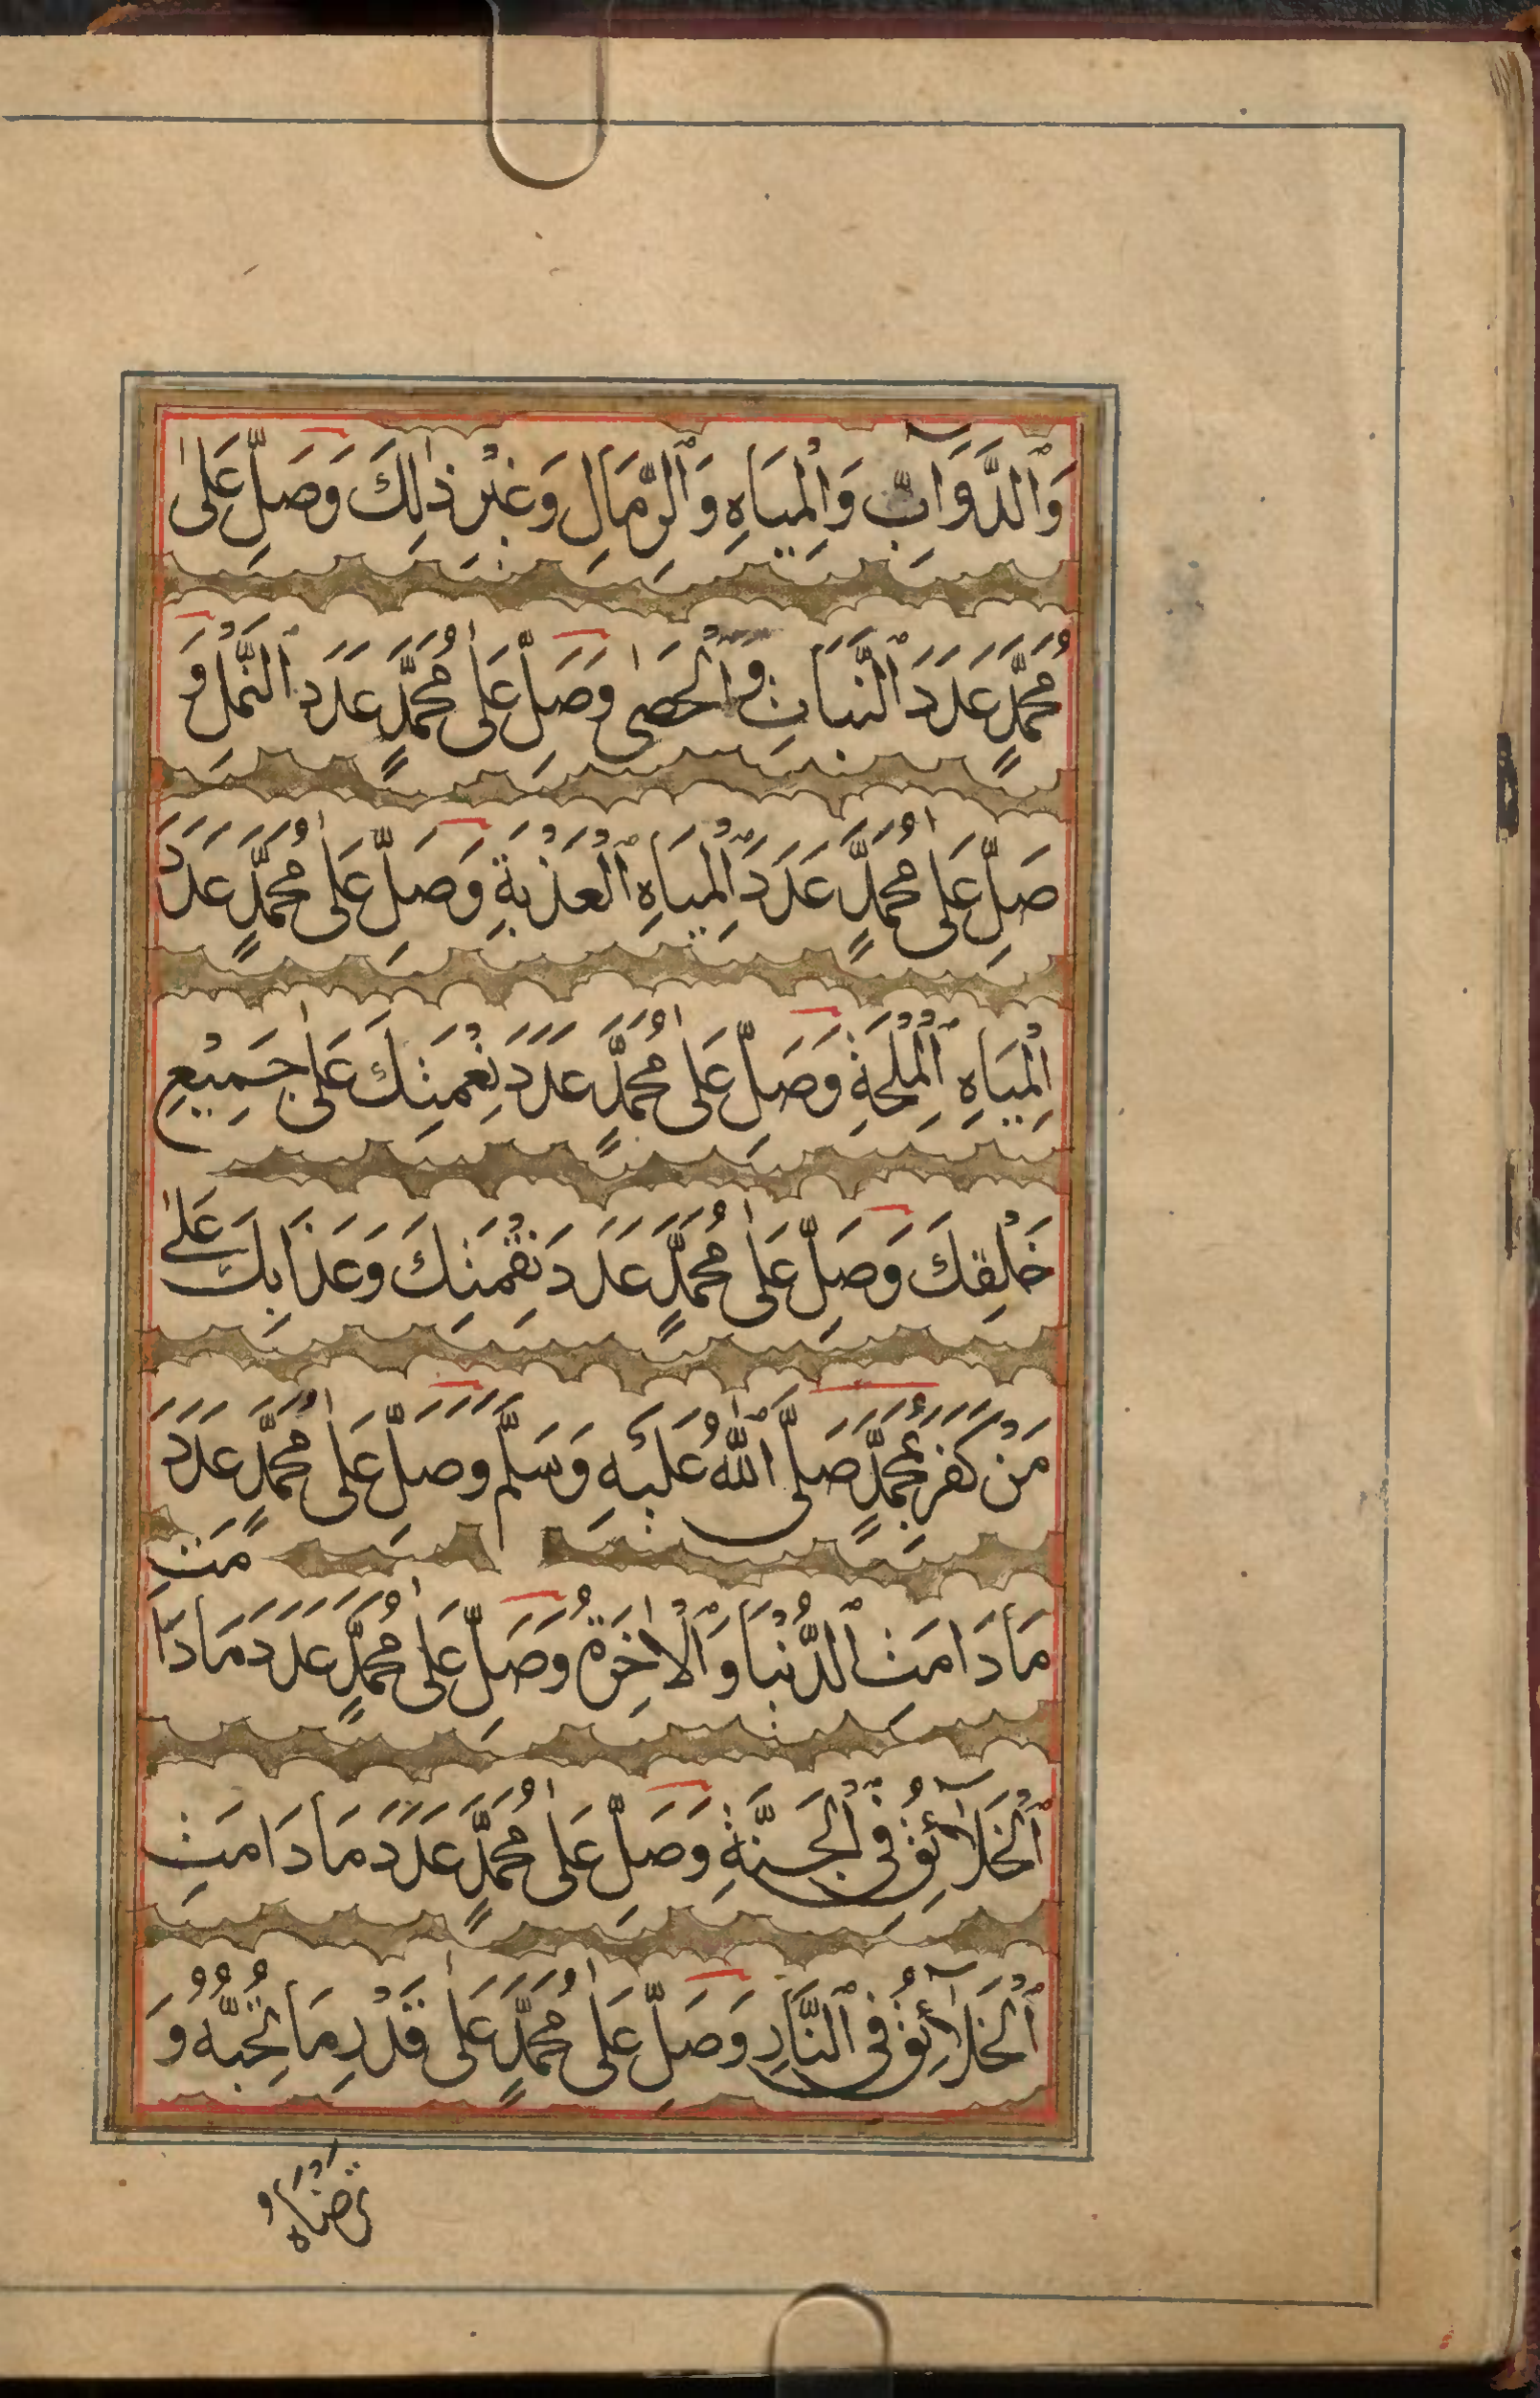 وَٱلدَّوَآبِّ وَٱلْمِيَاهِ وَٱلرِّمَالِ وَغَيْرِ ذٰلِكَ وَصَلِّ عَلىٰ
مُحَمَّدٍ عَدَدَ ٱلنَّبَاتِ وَٱلْحَصىٰ وَصَلِّ عَلىٰ مُحَمَّدٍ عَدَدَ ٱلنَّمْلِ وَ
صَلِّ عَلىٰ مُحَمَّدٍ عَدَدَ ٱلْمِيَاهِ ٱلْعَذْبَةِ وَصَلِّ عَلىٰ مُحَمَّدٍ عَدَدَ
ٱلْمِيَاهِ ٱلْمِلْحَةِ وَصَلِّ عَلىٰ مُحَمَّدٍ عَدَدَ نِعْمَتِكَ عَلىٰ جَمِيْعِ
خَلْقِكَ وَصَلِّ عَلىٰ مُحَمَّدٍ عَدَدَ نِقْمَتِكَ وَعَذَابِكَ عَلىٰ
مَنْ كَفَرَ بِمُحَمَّدٍ صَلَّى ٱللّٰهُ عَلَيْهِ وَسَلَّمَ وَصَلِّ عَلىٰ مُحَمَّدٍ عَدَدَ
مَا دَامَتِ ٱلدُّنْيَا وَٱلْاٰخِرَةُ وَصَلِّ عَلىٰ مُحَمَّدٍ عَدَدَ مَا دَامَتِ
ٱلْخَلَآئِقُ فِي ٱلْجَنَّةِ وَصَلِّ عَلىٰ مُحَمَّدٍ عَدَدَ مَا دَامَتِ
ٱلْخَلَآئِقُ فِي ٱلنَّارِ وَصَلِّ عَلىٰ مُحَمَّدٍ عَلىٰ قَدْرِ مَا تُحِبُّهُ وَ
تَرْضَاهُ